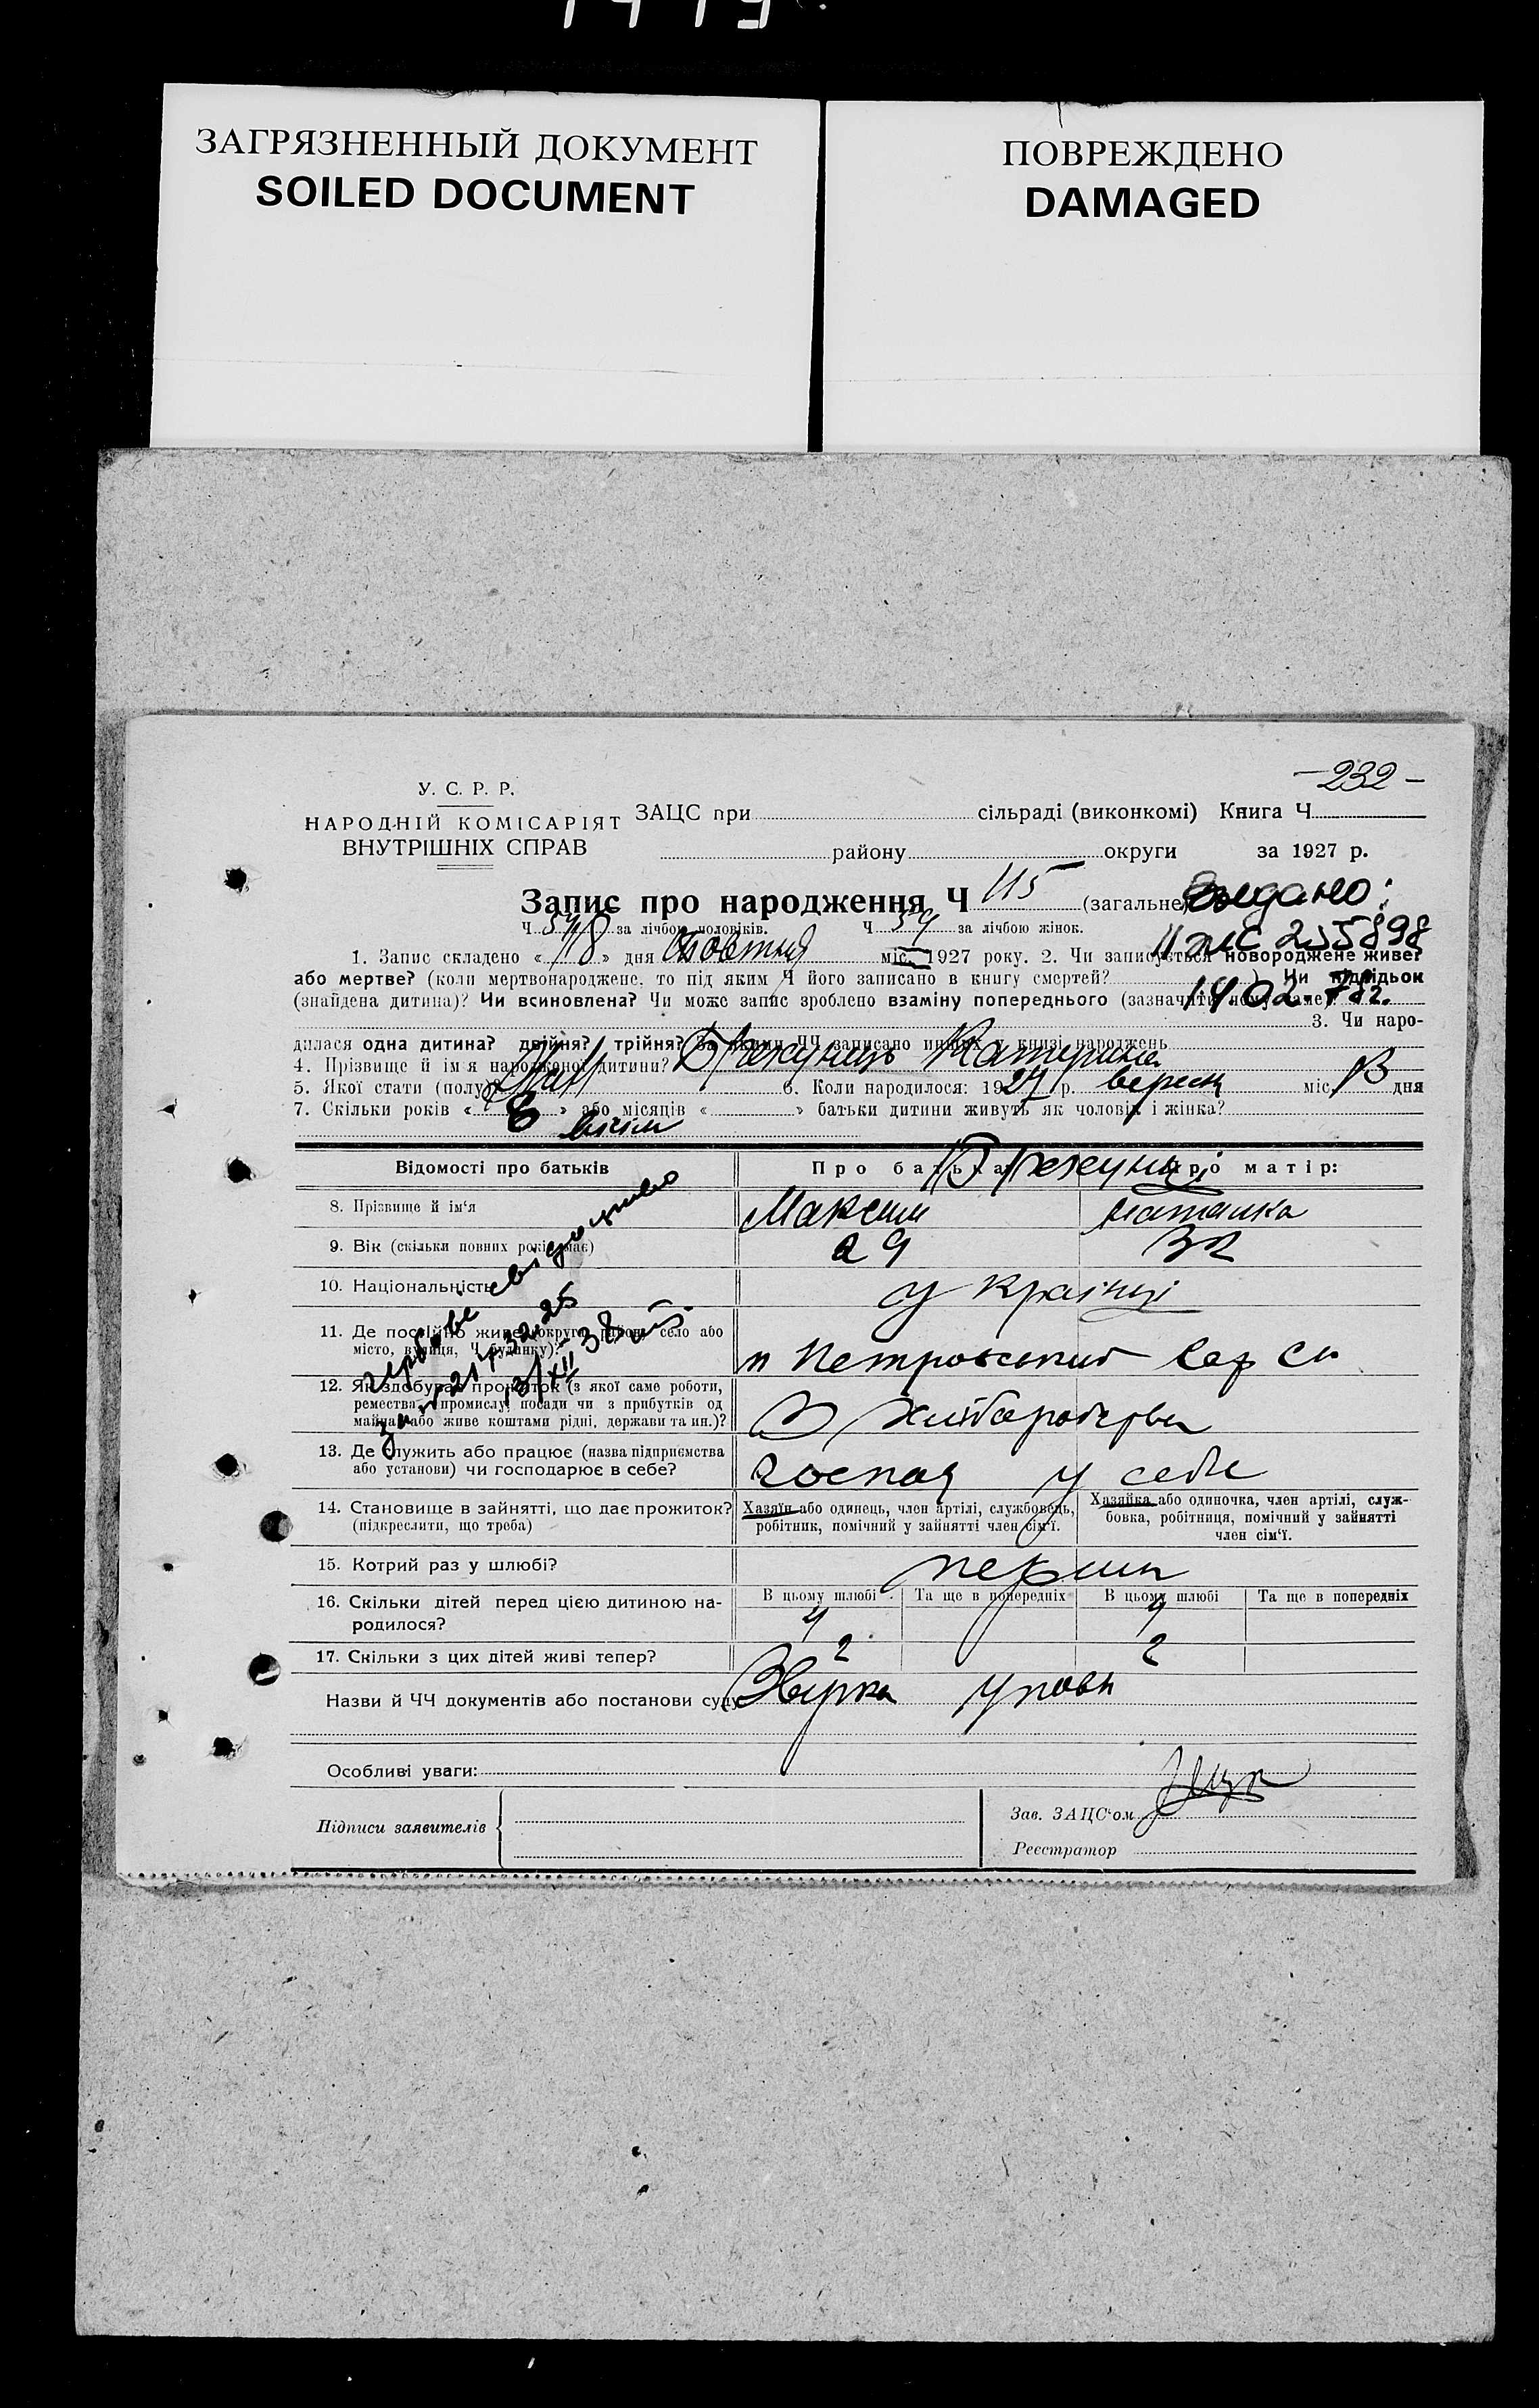 ЗАГРЯЗНЕННЫЙ ДОКУМЕНТ
SOILED DOCUMENT
ПОВРЕЖДЕНО
DAMAGED
-232-
У. С. Р. Р.
НАРОДНІЙ КОМІСАРІЯТ
ВНУТРІШНІХ СПРАВ
ЗАЦС при сільраді (виконкомі) Книга Ч
району округи за 1927 р.
Запис про народження Ч 115 (загальне)
Ч за лічбою чоловіків. Ч 54 за лічбою жінок.
1. Запис складено « 18 » дня Жовтня міс. 1927 року. 2. Чи записується новороджене живе?
або мертве? (коли мертвонароджене, то під яким Ч його записано в книгу смертей? ) Чи підкідьок
(знайдена дитина)? Чи всиновлена? Чи може запис зроблено взаміну попереднього (зазначити
14.02.78г.
3. Чи наро-
дилася одна дитина? двійня? трійня? За якими ЧЧ записано инших у книзі народжень
4. Прізвище й ім'я народженої дитини? Катерина
5. Якої стати (полу) 6. Коли народилося: 1927 р. вересня міс. 13 дня
7. Скільки років « 8 » або місяців « » батьки дитини живуть як чоловік і жінка?
вісім
Відомості про батьків
Про батька: Про матір:
8. Прізвище й ім'я Максим Наталка
9. Вік (скільки повних років має) 29 32
10. Національність українці
11. Де постійно живе (округа, район, село або
місто, вулиця, Ч будинку)? Петровський
12. Як здобуває прожиток (з якої саме роботи,
ремества, промислу, посади чи з прибутків од
майна або живе коштами рідні, держави та ин.)? З хліборобства
13. Де служить або працює (назва підприємства
або установи) чи господарює в себе? господ у себе
14. Становище в зайнятті, що дає прожиток?
(підкреслити, що треба)
Хазяїн або одинець, член артілі, службовець,
робітник, помічний у зайнятті член сім'ї.
Хазяйка або одиночка, член артілі, служ-
бовка, робітниця, помічний у зайнятті
член сім'ї.
15. Котрий раз у шлюбі? перший
В цьому шлюбі Та ще в попередніх В цьому шлюбі Та ще в попередніх
16. Скільки дітей перед цією дитиною на-
родилося? 4 4
17. Скільки з цих дітей живі тепер? 2 2
Назви й ЧЧ документів або постанови суду
Особливі уваги:
Підписи заявителів
Зав. ЗАЦС'ом
Реєстратор